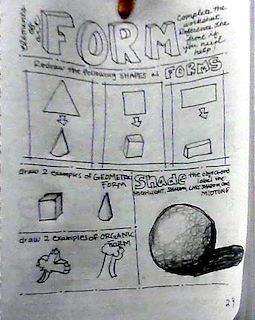 elements
of
art
FORM
Complete the
worksheet.
Reference the
front if
you need
help!
Redraw the following SHAPES as FORMS
draw 2 examples of GEOMETRIC
FORM
Shade the object and
label the:
HIGHLIGHT, SHADOW, CAST SHADOW, and
MIDTONE
draw 2 examples of ORGANIC
FORM
29